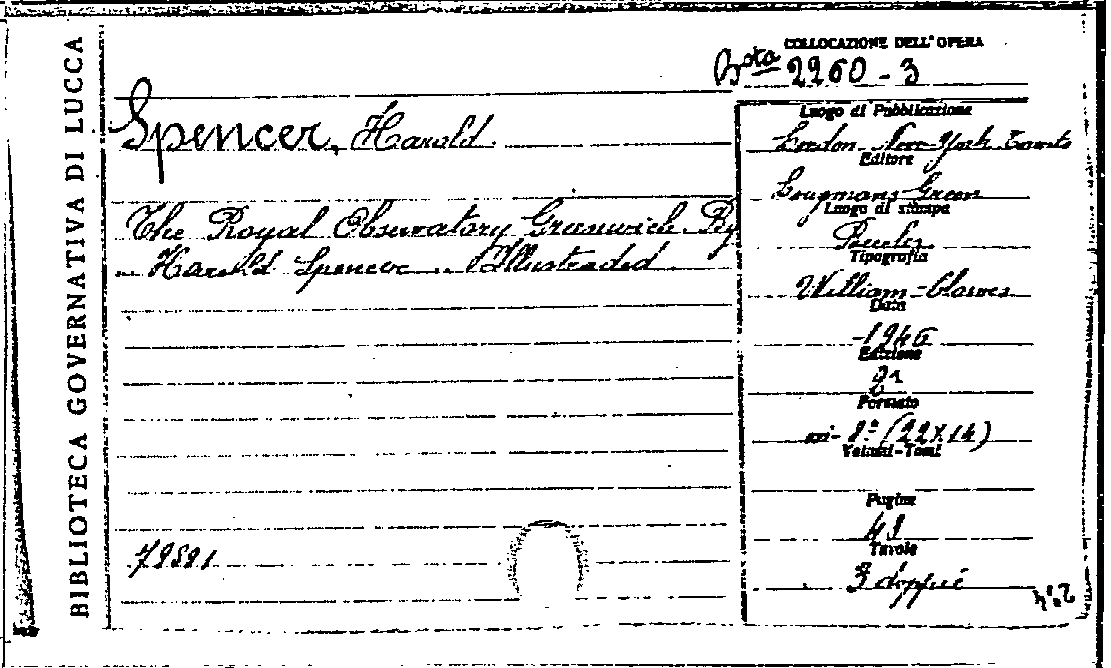 BIBLIOTECA GOVERNATIVA DI LUCCA
COLLOCAZIONE DELL'OPERA
B.sta 2260-3
Spencer, Harold
The Royal Observatory Greenwich. By
Harold Spencer. Illustraded
79891
Luogo di Pubblicazione
London New-York Toronto
Editore
Longmans Green
Luogo di stampa
Beccles
Tipografia
William-Clowes
Data
-1946
Edizione
2ª
Formato
8º (22x14)
Volumi-Tomi
Pagine
48
Tavole
3 doppie